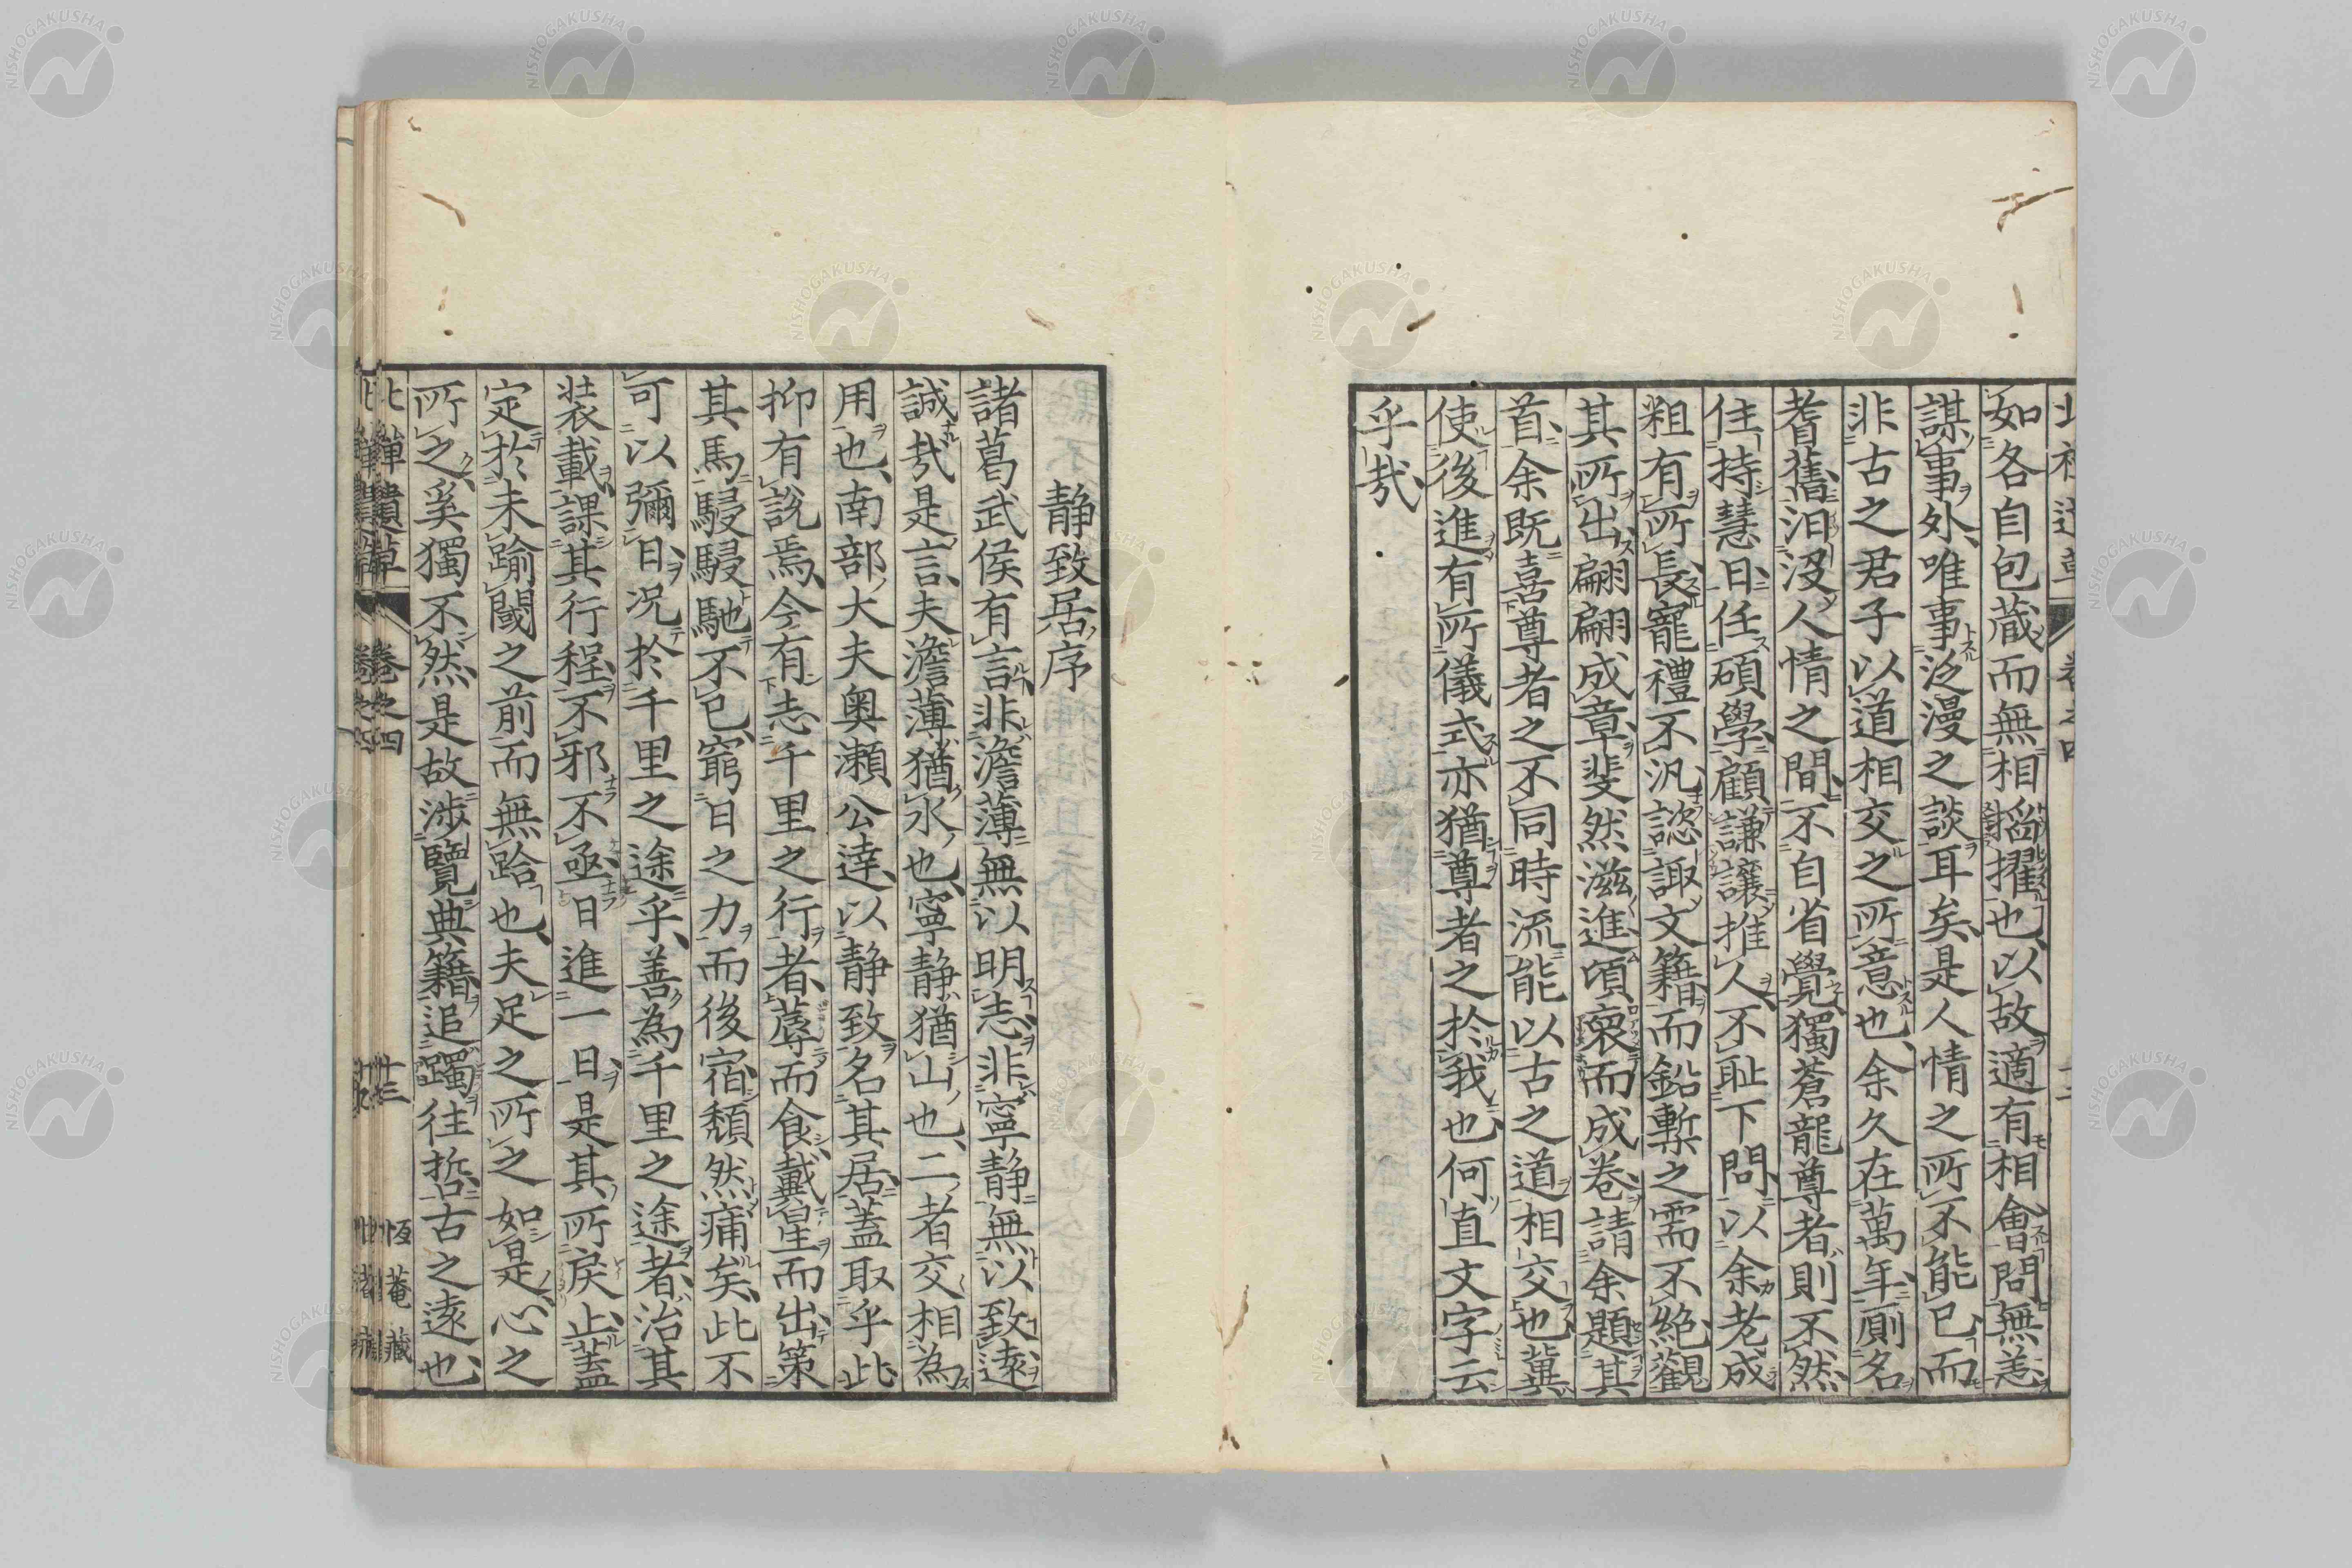 如各自包蔵而無相搯擢也以故適有相會問無恙
謀事外唯事泛漫之談耳矣是人情之所不能已而
非古之君子以道相交之所意也余久在萬年厠名
耆舊汨沒人情之間不自省覺獨蒼龍尊者則不然
住持慧日任碩學顧謙讓推人不耻下問以余老成
粗有所長寵禮不汎諮諏文籍而鉛槧之需不絶觀
其所出翩翩成章斐然滋進頃裒而成卷請余題其
首余既喜尊者之不同時流能以古之道相交也冀
使後進有所儀式亦猶尊者之於我也何直文字云
乎哉
静致居序
諸葛武侯有言非澹薄無以明志非寧静無以致遠
誠哉是言夫澹薄猶水也寧静猶山也二者交相為
用也南部大夫奥瀬公達以静致名其居蓋取乎此
抑有說焉今有志千里之行者蓐而食戴星而出策
其馬駸駸馳不已窮日之力而後宿頽然痡矣此不
可以彌日况於千里之途乎善為千里之途者治其
裝載課其行程不邪不亟日進一日是其所戾止蓋
定於未踰閾之前而無跲也夫足之所之如是心之
所之奚獨不然是故涉覽典籍追躅往哲古之遠也
北禪遺草 卷之四 十三 恆菴藏
NISHOGAKUSHA